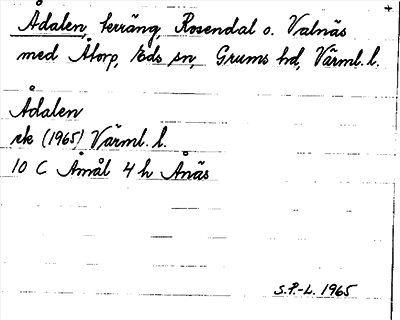 Ådalen, terräng, Rosendal o. Valnäs
med Åtorp, Eds sn, Grums hd, Värml. l.
Ådalen
ek (1965) Värml. l.
10 C Åmål 4 h Ånäs
S.P.-L. 1965